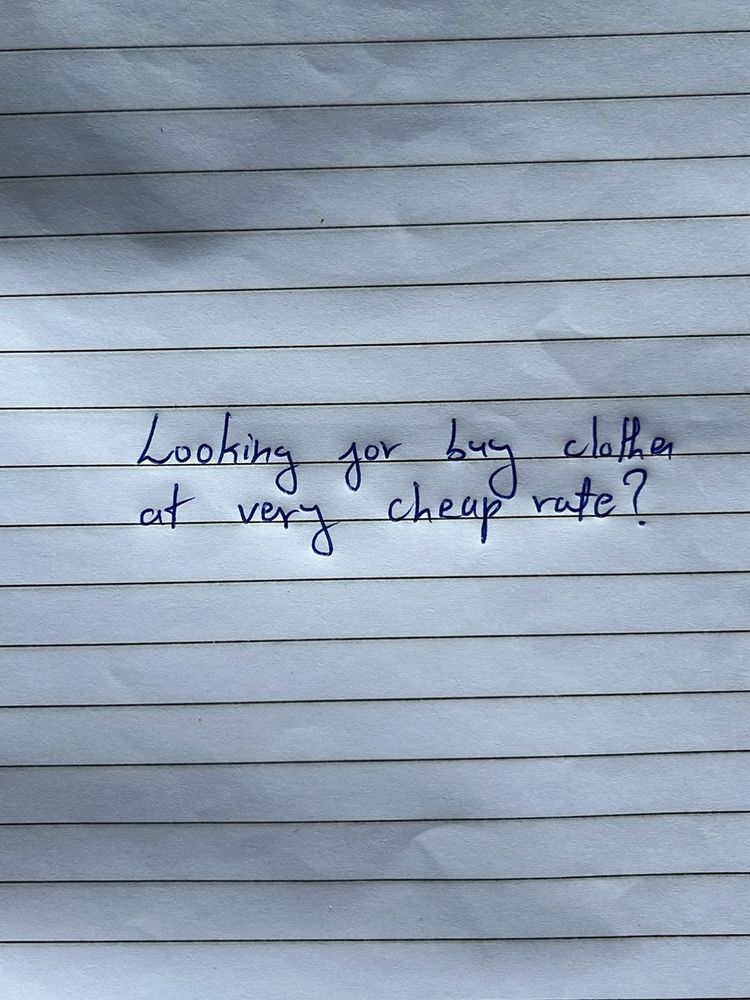 Looking for buy clothes
at very cheap rate?